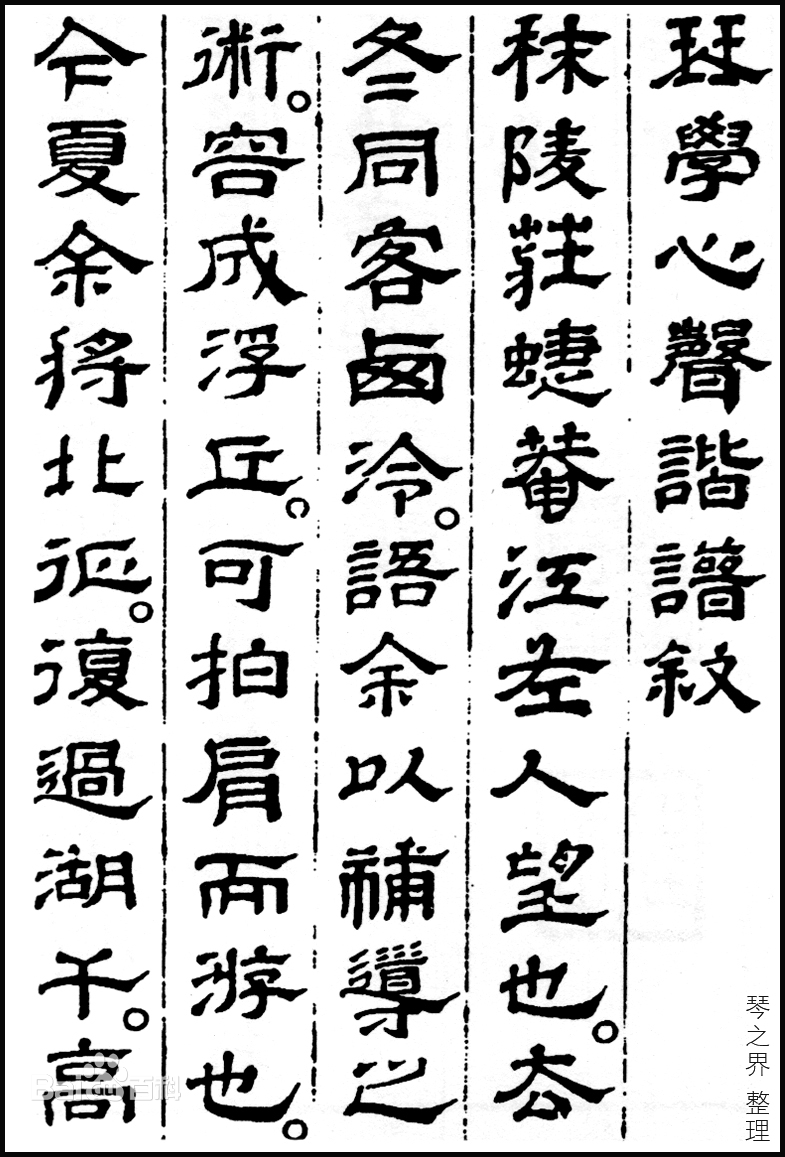 琴學心聲諧譜敘
秣陵莊蜨菴江左人望也。去
冬同客西泠。語余以補導之
術。容成浮丘。可拍肩而游也。
今夏余將北征。復過湖干。高
琴之界 整理
Baidu百科